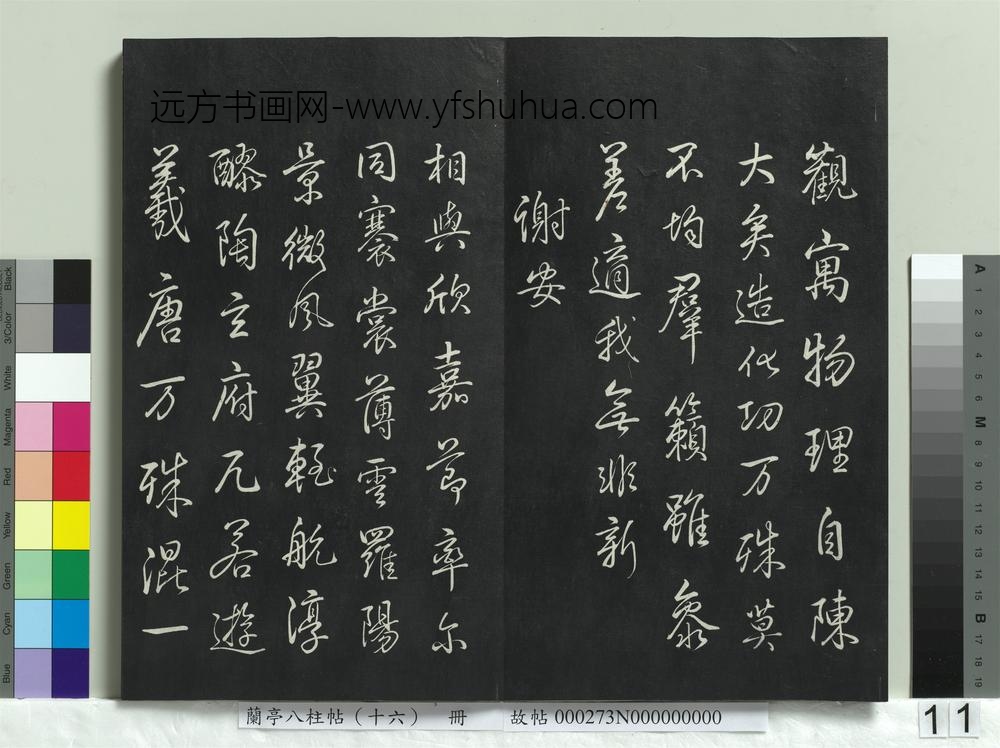 远方书画网-www.yfshuhua.com
觀寓物理自陳
大矣造化功万殊莫
不均羣籟雖參
差適我無非新
謝安
相與欣嘉節率尔
同褰裳薄雲羅陽
景微風翼輕航淳
醪陶玄府兀若遊
羲唐万殊混一
蘭亭八柱帖（十六） 冊 故帖 000273N000000000
11
Black
3/Color
White
Magenta
Red
Yellow
Green
Cyan
Blue
A 1 2 3 4 5 6 M 8 9 10 11 12 13 14 15 B 17 18 19